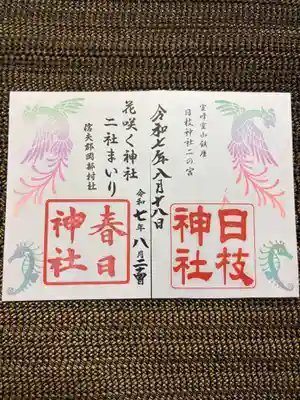 宝峰宝山鎮座
日枝神社二の宮
令和七年八月十八日
日枝
神社
花咲く神社
二社まいり
信夫郡岡部村社
令和七年八月二十四日
春日
神社